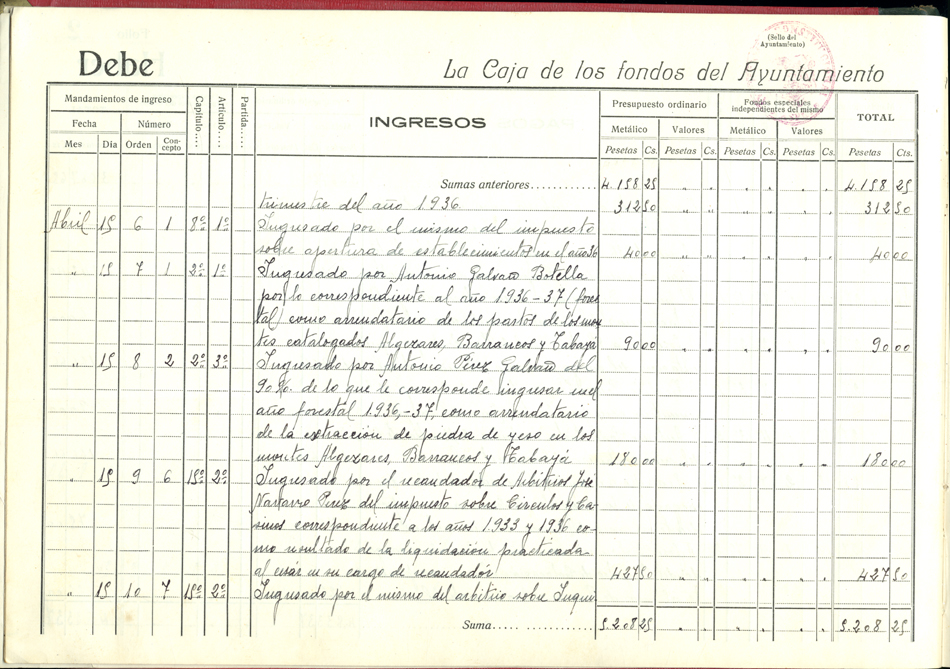 (Sello del Ayuntamiento)
Debe
La Caja de los fondos del Ayuntamiento
Mandamientos de ingreso Capítulo.... Artículo.... Partida.... INGRESOS Presupuesto ordinario Fondos especiales independientes del mismo TOTAL
Fecha Número Metálico Valores Metálico Valores
Mes Día Orden Concepto Pesetas Cs. Pesetas Cs. Pesetas Cs. Pesetas Cs. Pesetas Cts.
Sumas anteriores............ 4.158 25 " " " " " " 4.158 25
trimestre del año 1936. 312 50 " " " " " " 312 50
Abril 15 6 1 8º 1º Ingresado por el mismo del impuesto
sobre apertura de establecimientos en el año 36 40 00 " " " " " " 40 00
" 15 7 1 2º 1º Ingresado por Antonio Galvañ Botella
por lo correspondiente al año 1936-37 (fores
tal) como arrendatario de los pastos de los mon
tes catalogados Algezares, Barrancos y Tabayá 90 00 " " " " " " 90 00
" 15 8 2 2º 3º Ingresado por Antonio Pérez Galvañ del
90%. de lo que le corresponde ingresar en el
año forestal 1936,-37, como arrendatario
de la extracción de piedra de yeso en los
montes Algezares, Barrancos y Tabayá 180 00 " " " " " " 180 00
" 15 9 6 15º 2º Ingresado por el recaudador de Arbitrios José
Navarro Pérez del impuesto sobre Círculos y Ca-
sinos correspondiente a los años 1933 y 1936 co-
mo resultado de la liquidación practicada
al cesar en su cargo de recaudador 427 50 " " " " " " 427 50
" 15 10 7 15º 2º Ingresado por el mismo del arbitrio sobre Inqui-
Suma..... ............ 5.208 25 " " " " " " 5.208 25